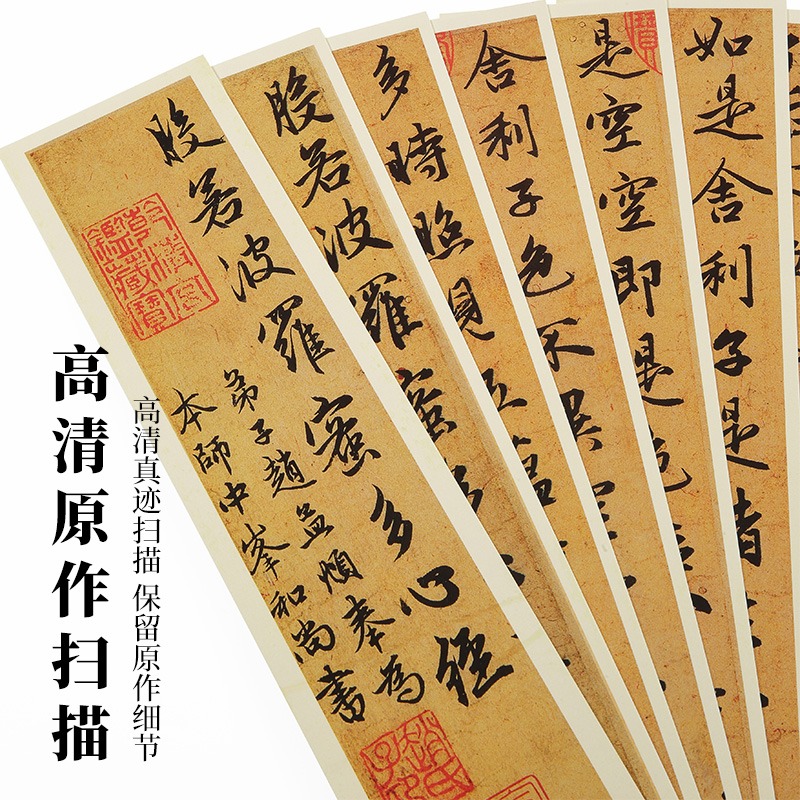 高清原作扫描
高清真迹扫描 保留原作细节
般若波羅蜜多心經
弟子趙孟頫奉為
本師中峯和尚書
般若波羅蜜多
多時照見五蘊
舍利子色不異空
是空空即是色
如是舍利子是諸